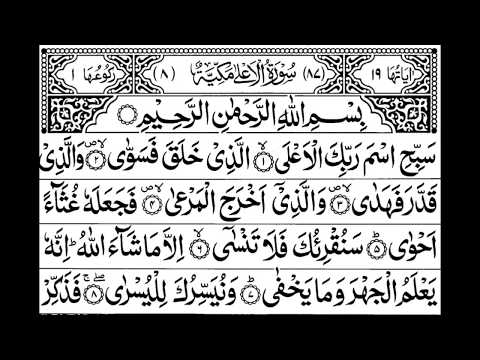 اٰیَاتُهَا ۱۹ (۸۷) سُوْرَةُ الْاَعْلٰی مَكِّيَّةٌ (۸) رُكُوْعُهَا ۱
بِسْمِ اللّٰهِ الرَّحْمٰنِ الرَّحِيْمِ
سَبِّحِ اسْمَ رَبِّكَ الْاَعْلَى ۙ﴿۱﴾ الَّذِیْ خَلَقَ فَسَوّٰی ۪ۙ﴿۲﴾ وَالَّذِیْ
قَدَّرَ فَهَدٰی ۪ۙ﴿۳﴾ وَالَّذِیْۤ اَخْرَجَ الْمَرْعٰی ۪ۙ﴿۴﴾ فَجَعَلَهٗ غُثَآءً
اَحْوٰی ؕ﴿۵﴾ سَنُقْرِئُكَ فَلَا تَنْسٰۤی ۙ﴿۶﴾ اِلَّا مَا شَآءَ اللّٰهُ ؕ اِنَّهٗ
یَعْلَمُ الْجَهْرَ وَمَا یَخْفٰی ؕ﴿۷﴾ وَنُیَسِّرُكَ لِلْیُسْرٰی ۚۖ﴿۸﴾ فَذَكِّرْ